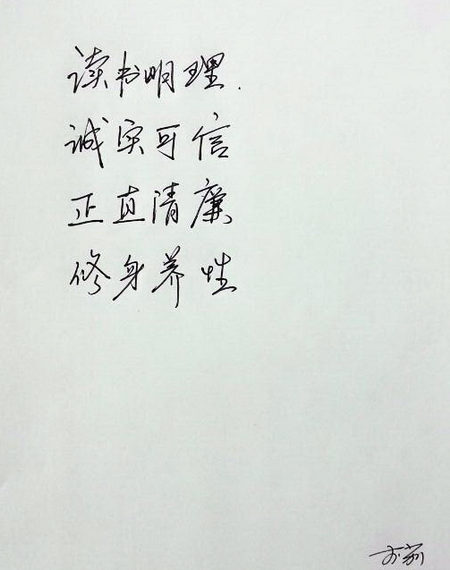 读书明理.
诚实可信
正直清廉
修身养性